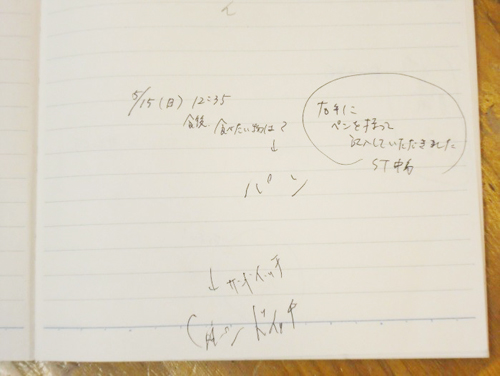 5/15(日) 12:35
食後 食べたい物は?
↓
パン
右手に
ペンを持って
記入していただきました
ST中島
↓サンドイッチ
ドイッチ